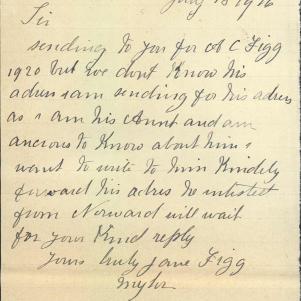 July 18 1916
Sir
sending to you for A C Figg
1920 but we dont Know his
adres i am sending for his adres
as i am his Aunt and am
ancious to Know about him i
want to write to him Kindely
forward his adres to
from Norward will wait
for your Kind reply
yours truly Jane Figg